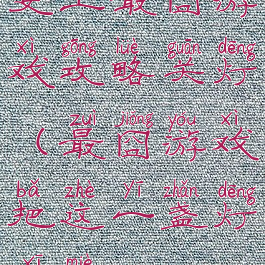 史上最囧游
xì gōng lüè guān dēng
戏攻略关灯
zuì jiǒng yóu xì
（最囧游戏
bǎ zhè yī zhǎn dēng
把这一盏灯
xī miè